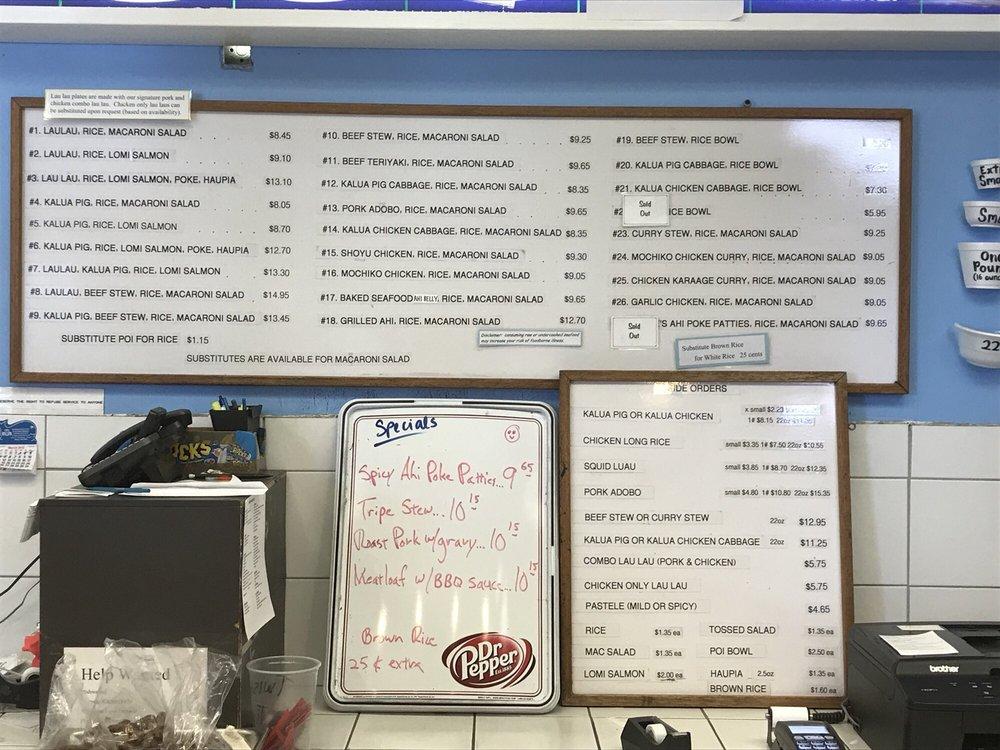 Lau lau plates are made with our signature pork and
chicken combo lau lau. Chicken only lau laus can
be substituted upon request (based on availability).
#1. LAULAU, RICE, MACARONI SALAD $8.45
#2. LAULAU, RICE, LOMI SALMON $9.10
#3. LAU LAU, RICE, LOMI SALMON, POKE, HAUPIA $13.10
#4. KALUA PIG, RICE, MACARONI SALAD $8.05
#5. KALUA PIG, RICE, LOMI SALMON $8.70
#6. KALUA PIG, RICE, LOMI SALMON, POKE, HAUPIA $12.70
#7. LAULAU, KALUA PIG, RICE, LOMI SALMON $13.30
#8. LAULAU, BEEF STEW, RICE, MACARONI SALAD $14.95
#9. KALUA PIG, BEEF STEW, RICE, MACARONI SALAD $13.45
SUBSTITUTE POI FOR RICE $1.15
SUBSTITUTES ARE AVAILABLE FOR MACARONI SALAD
#10. BEEF STEW, RICE, MACARONI SALAD $9.25
#11. BEEF TERIYAKI, RICE, MACARONI SALAD $9.65
#12. KALUA PIG CABBAGE, RICE, MACARONI SALAD $8.35
#13. PORK ADOBO, RICE, MACARONI SALAD $9.65
#14. KALUA CHICKEN CABBAGE, RICE, MACARONI SALAD $8.35
#15. SHOYU CHICKEN, RICE, MACARONI SALAD $9.30
#16. MOCHIKO CHICKEN, RICE, MACARONI SALAD $9.05
#17. BAKED SEAFOOD AHI BELLY, RICE, MACARONI SALAD $9.65
#18. GRILLED AHI, RICE, MACARONI SALAD $12.70
Disclaimer: consuming raw or undercooked seafood
may increase your risk of foodborne illness.
#19. BEEF STEW, RICE BOWL
#20. KALUA PIG CABBAGE, RICE BOWL
#21. KALUA CHICKEN CABBAGE, RICE BOWL $7.30
#2 Sold Out ICE BOWL $5.95
#23. CURRY STEW, RICE, MACARONI SALAD $9.25
#24. MOCHIKO CHICKEN CURRY, RICE, MACARONI SALAD $9.05
#25. CHICKEN KARAAGE CURRY, RICE, MACARONI SALAD $9.05
#26. GARLIC CHICKEN, RICE, MACARONI SALAD $9.05
Sold Out 'S AHI POKE PATTIES, RICE, MACARONI SALAD $9.65
Substitute Brown Rice
for White Rice 25 cents
Ext
Sma
Sm
One
Poun
(16 ounc
22
SERVE THE RIGHT TO REFUSE SERVICE TO ANYONE
CKS
Specials
Spicy Ahi Poke Patties... 9 65
Tripe Stew... 10 15
Roast Pork w/gravy... 10 15
Meatloaf w/BBQ sauce... 10 15
Brown Rice
25 ¢ extra
Dr
Pepper
IDE ORDERS
KALUA PIG OR KALUA CHICKEN x small $2.20
1# $8.15 22oz
CHICKEN LONG RICE small $3.35 1# $7.50 22oz $10.55
SQUID LUAU small $3.85 1# $8.70 22oz $12.35
PORK ADOBO small $4.80 1# $10.80 22oz $15.35
BEEF STEW OR CURRY STEW 22oz $12.95
KALUA PIG OR KALUA CHICKEN CABBAGE 22oz $11.25
COMBO LAU LAU (PORK & CHICKEN) $5.75
CHICKEN ONLY LAU LAU $5.75
PASTELE (MILD OR SPICY) $4.65
RICE $1.35 ea TOSSED SALAD $1.35 ea
MAC SALAD $1.35 ea POI BOWL $2.50 ea
LOMI SALMON $2.00 ea HAUPIA 2.5oz $1.35 ea
BROWN RICE $1.60 ea
Help W nted
brother